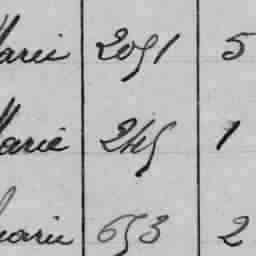 Marie 2051 5
Marie 245 1
marie 653 2